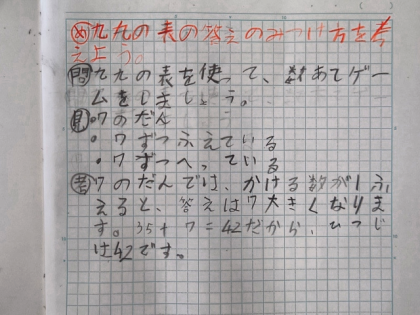 め 九九の表の答えのみつけ方を考
えよう。
問 九九の表を使って、数あてゲー
ムをしましょう。
見・7のだん
・7ずつふえている
・7ずつへっている
考 7のだんでは、かける数が1ふ
えると、答えは7大きくなりま
す。35+7=42だから、ひつじ
は42です。